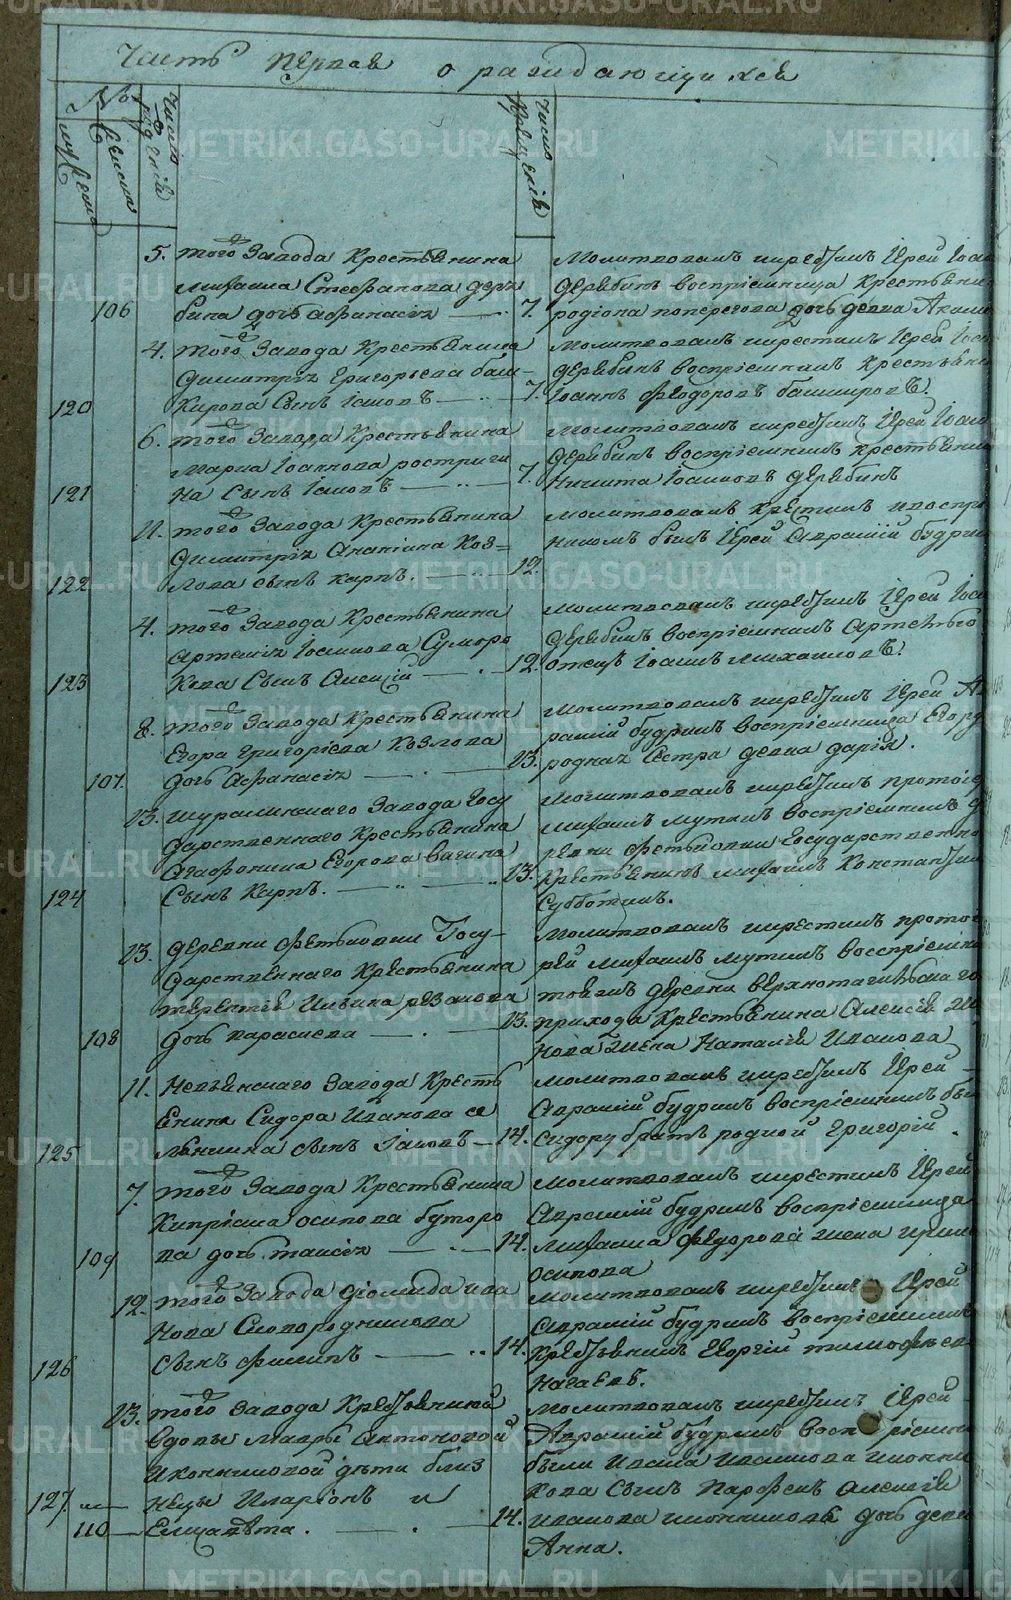 Часть первая о раждающихся
№
мужеска
женска
Число рождения
Число крещения
5. того Завода Крестьянина
Михаила Стефанова деря
106 бина дочь афанасия 7.
Молитвовалъ икрестилъ Іерей Іоан
дерябинъ воспріемница Крестьяни
родіона поперегова дочь девка
4. того Завода Крестьянина
Димитрія Григорьева баш-
120 кирова Сынъ Іаковъ 7.
Молитвовалъ икрестилъ Іерей Іоан
дерябинъ воспріемникъ Крестьяни
Іоаннъ Феодоровъ башкировъ.
6. того Завода Крестьянина
Марка Іоаннова рострыги
121 на Сынъ Іаковъ 7.
Молитвовалъ икрестилъ Іерей Іоан
дерябинъ воспріемникъ крестьянинъ
Никита Іоанновъ дерябинъ
11. того Завода Крестьянина
Димитрія Ананіина Коз=
122 лова сынъ карпъ. 12.
молитвовалъ Крестилъ ивоспрі
никомъ былъ Іерей Аврамій будрин
4. того Завода Крестьянина
Артемія Іоаннова Суморо
123 кова Сынъ Алексій 12.
молитвовалъ икрестилъ Іерей Іоан
дерябинъ воспріемникъ Артемьего
отецъ Іоаннъ михаиловъ.
8. того Завода Крестьянина
Егора Григоріева Козлова
107. дочь Афанасія 13.
молитвовалъ икрестилъ Іерей Ав
рамій будринъ воспріемница Егору
родная Сестра девка дарія.
13. шуралинскаго Завода Госу
дарственнаго Крестьянина
Агафоника Егорова вагина
124 Сынъ Карпъ. 13.
Молитвовалъ икрестилъ протоіе
михаилъ мутинъ воспріемникъ д
ревни Фетьковки Государственно
Крестьянинъ михаилъ Константин
Субботинъ.
13. деревни Фетьковки Госу-
дарственнаго Крестьянина
терентія Ильина резанова
108 дочь парасковья 13.
Молитвовалъ икрестилъ протоі
рей михаилъ мутинъ восспріемни
деревни верхнотагильскаго
прихода Крестьянина Алексія
нова жена Наталія Иванова
11. Невьянскаго Завода Кресть
янина Сидора Иванова се
125 льянина сынъ Іаковъ 14.
молитвовалъ икрестилъ Іерей
Аврамій будринъ воспріемникъ бы
Сидору братъ родной Григорій.
7. того Завода Крестьянина
Кипріана осипова буторо
109 ва дочь таисія 14.
молитвовалъ икрестилъ Іерей
Аврамій будринъ воспріемница
михаила Федорова жена ирина
осипова
12. того Завода діомида ива
нова Сковородникова
126 сынъ филипъ 14.
молитвовалъ икрестилъ Іерей
Аврамій будринъ воспріемникъ
крестьянинъ Георгій тимофѣев
нагаевъ.
13. того Завода Крестьянской
вдовы мавры антоновой
иконниковой дѣти близ
127. нецы Иларіонъ и
110 Елизавѣта. 14.
молитвовалъ икрестилъ Іерей
Аврамій будринъ воспріемни
были Ивана Иванова иконни
кова Сынъ Парфенъ Алексія
иванова иконникова дочь девк
Анна.
METRIKI.GASO-URAL.RU